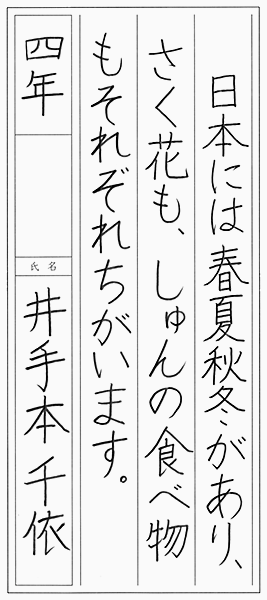 日本には春夏秋冬があり、
さく花も、しゅんの食べ物
もそれぞれちがいます。
四年
氏名
井手本千依